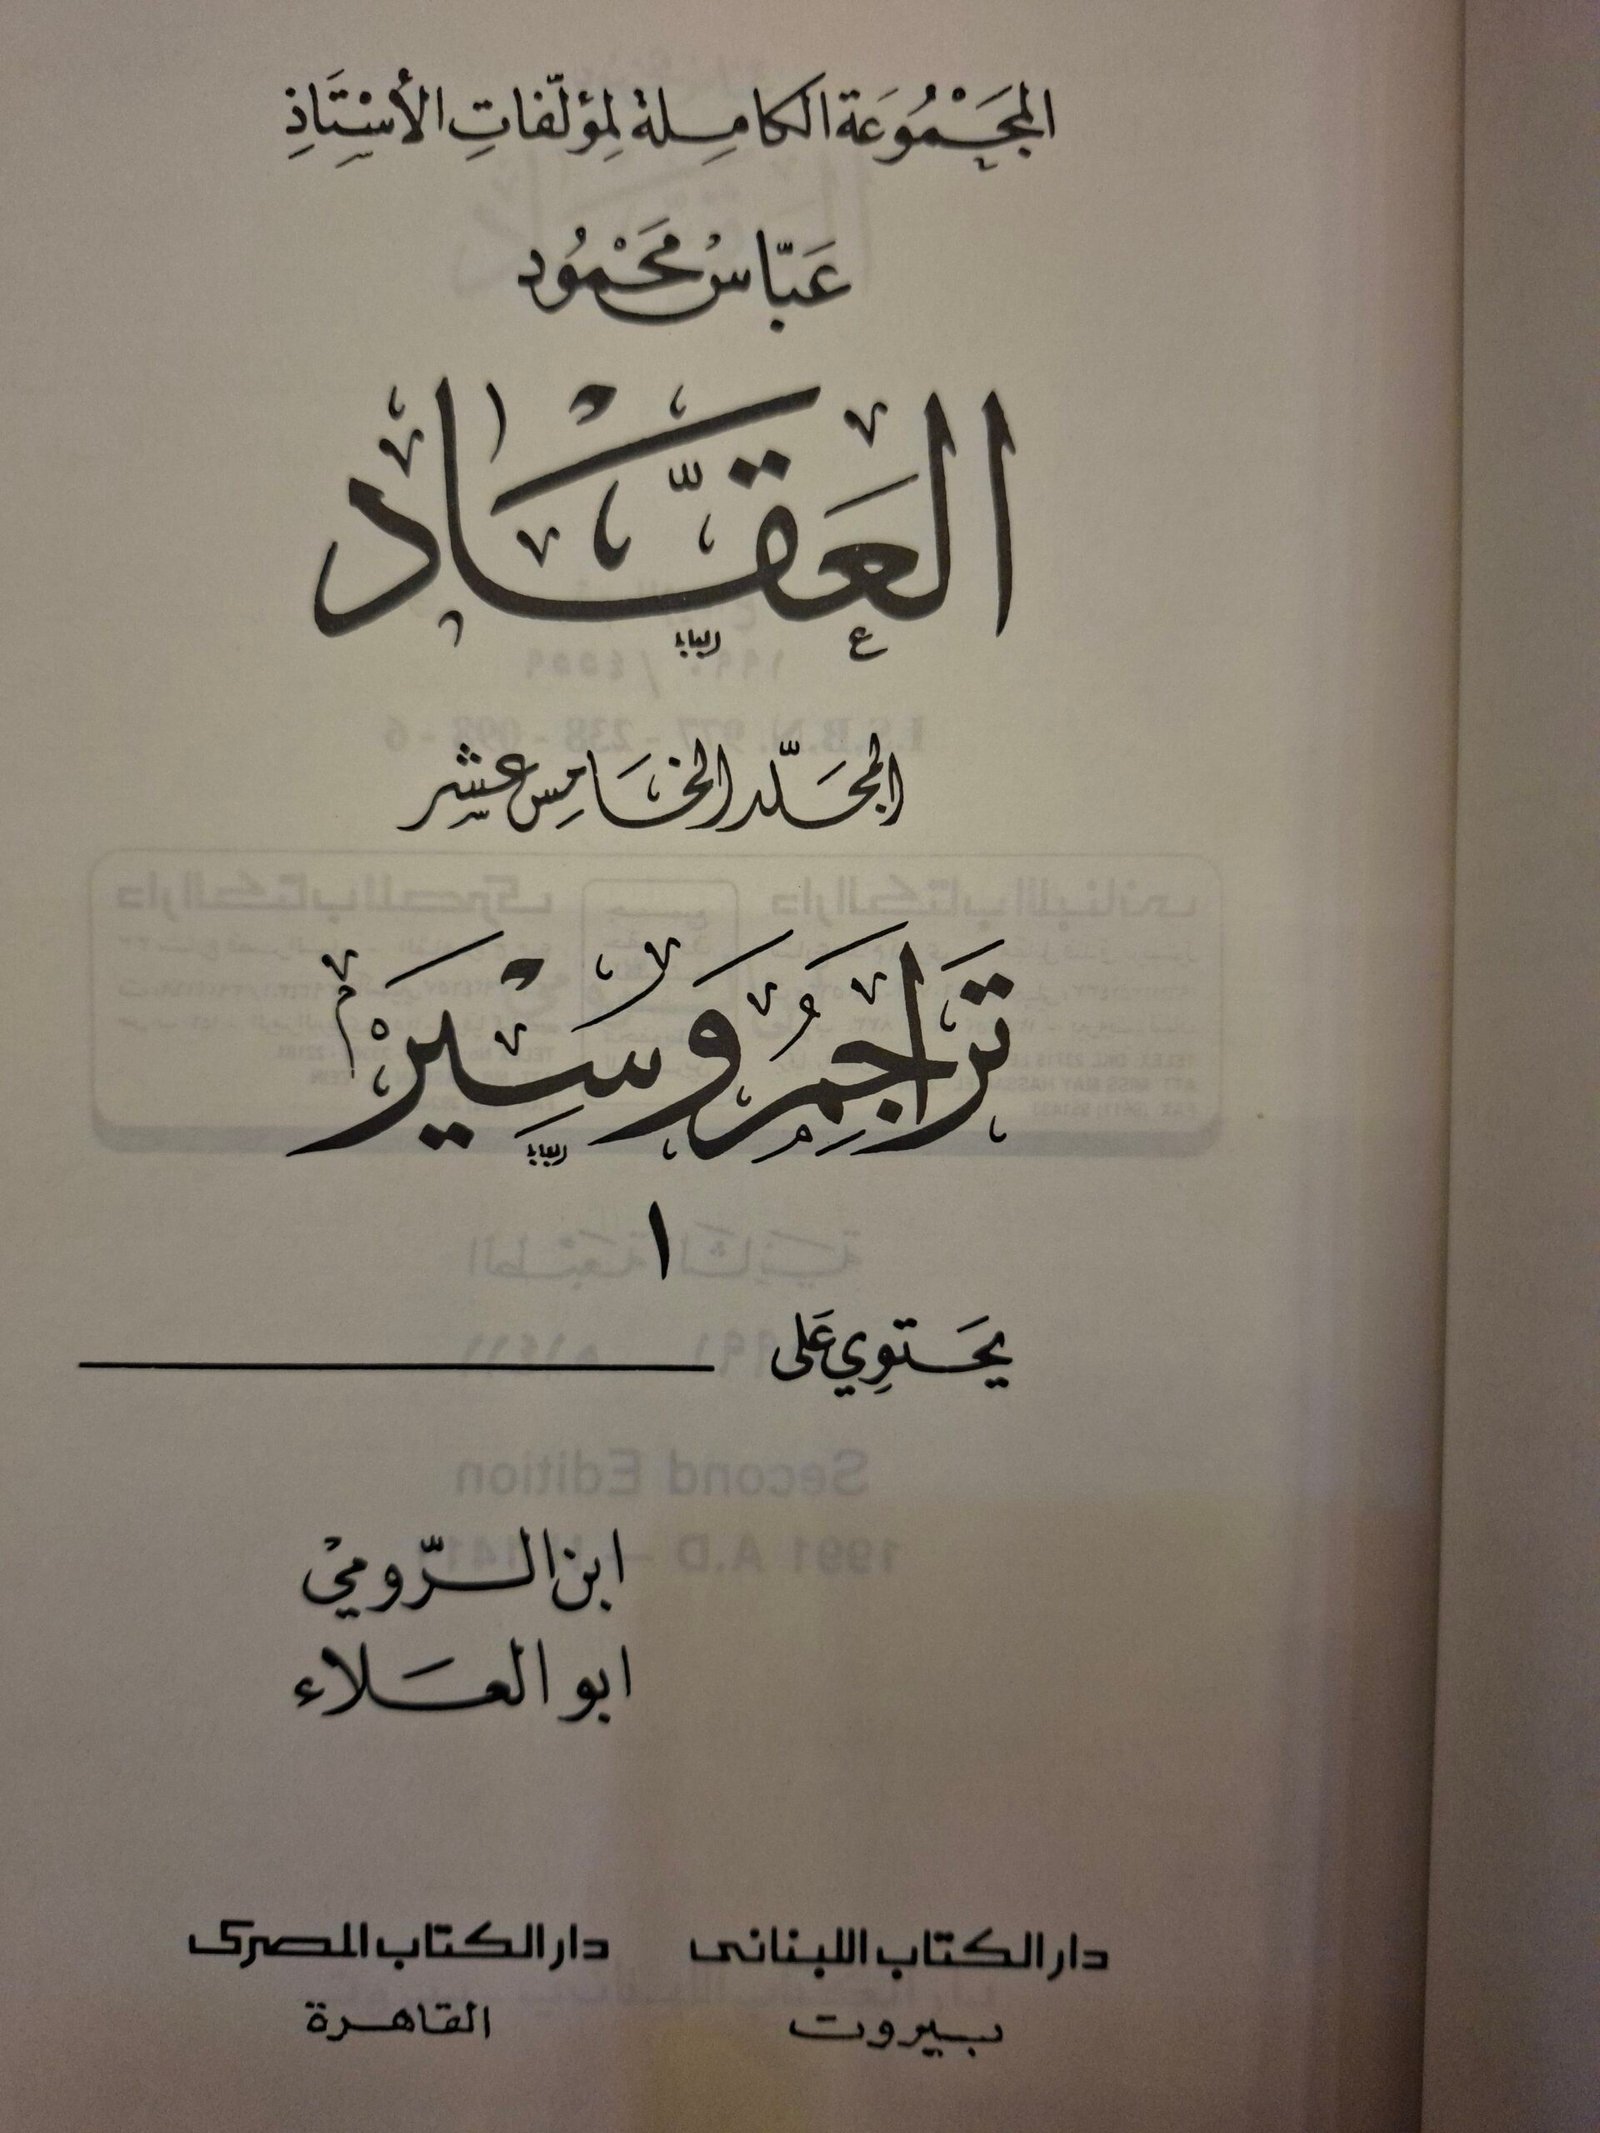 المجَمْوُعَة الكامِلة لمؤلّفاتِ الأسْتَاذِ
عَبّاسْ محَمْوُد
العَقَّاد
المجَلّد الخَامِس عشر
تَراجِمُ وَسِيَرْ
١
يحَتوِي عَلى
ابن الرّومي
ابو العَلاء
دار الكتاب اللبنانى دار الكتاب المصرى
بيروت القاهرة